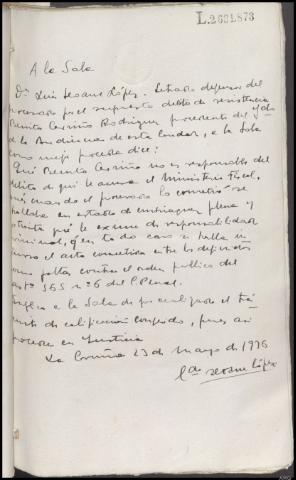 L.2631.873
A la Sala
Dn. Luis Seoane López. Letrado defensor del
procesado por el supuesto delito de resistencia
Benito Carriño Rodríguez procedente del Jdo
de la Audiencia de esta Ciudad, a la Sala
como mejor proceda dice:
Qué Benito Carriño no es responsable del
delito de que le acusa el Ministerio Fiscal,
pues cuando el procesado lo cometió se
hallaba en estado de embriaguez plena y
fortuita que le exime de responsabilidad
criminal, y en todo caso se halla in
curso el acto cometido entre los definidos
como faltas contra el orden público del
artº 565 nº 6 del C. Penal.
Suplica a la Sala dé por realizado el trá
mite de calificación conferido, pues así
procede en Justicia
La Coruña 23 de Mayo de 1936
Ldo. Seoane López